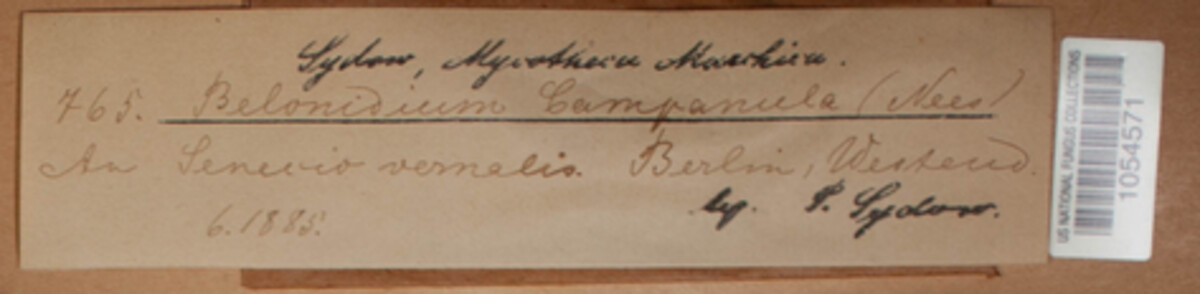 Sydow, Mycotheca Marchica.
765. Belonidium Campanula (Nees)
An Senecio vernalis. Berlin, Westend.
6.1885.
leg. P. Sydow.
US NATIONAL FUNGUS COLLECTIONS
1054571